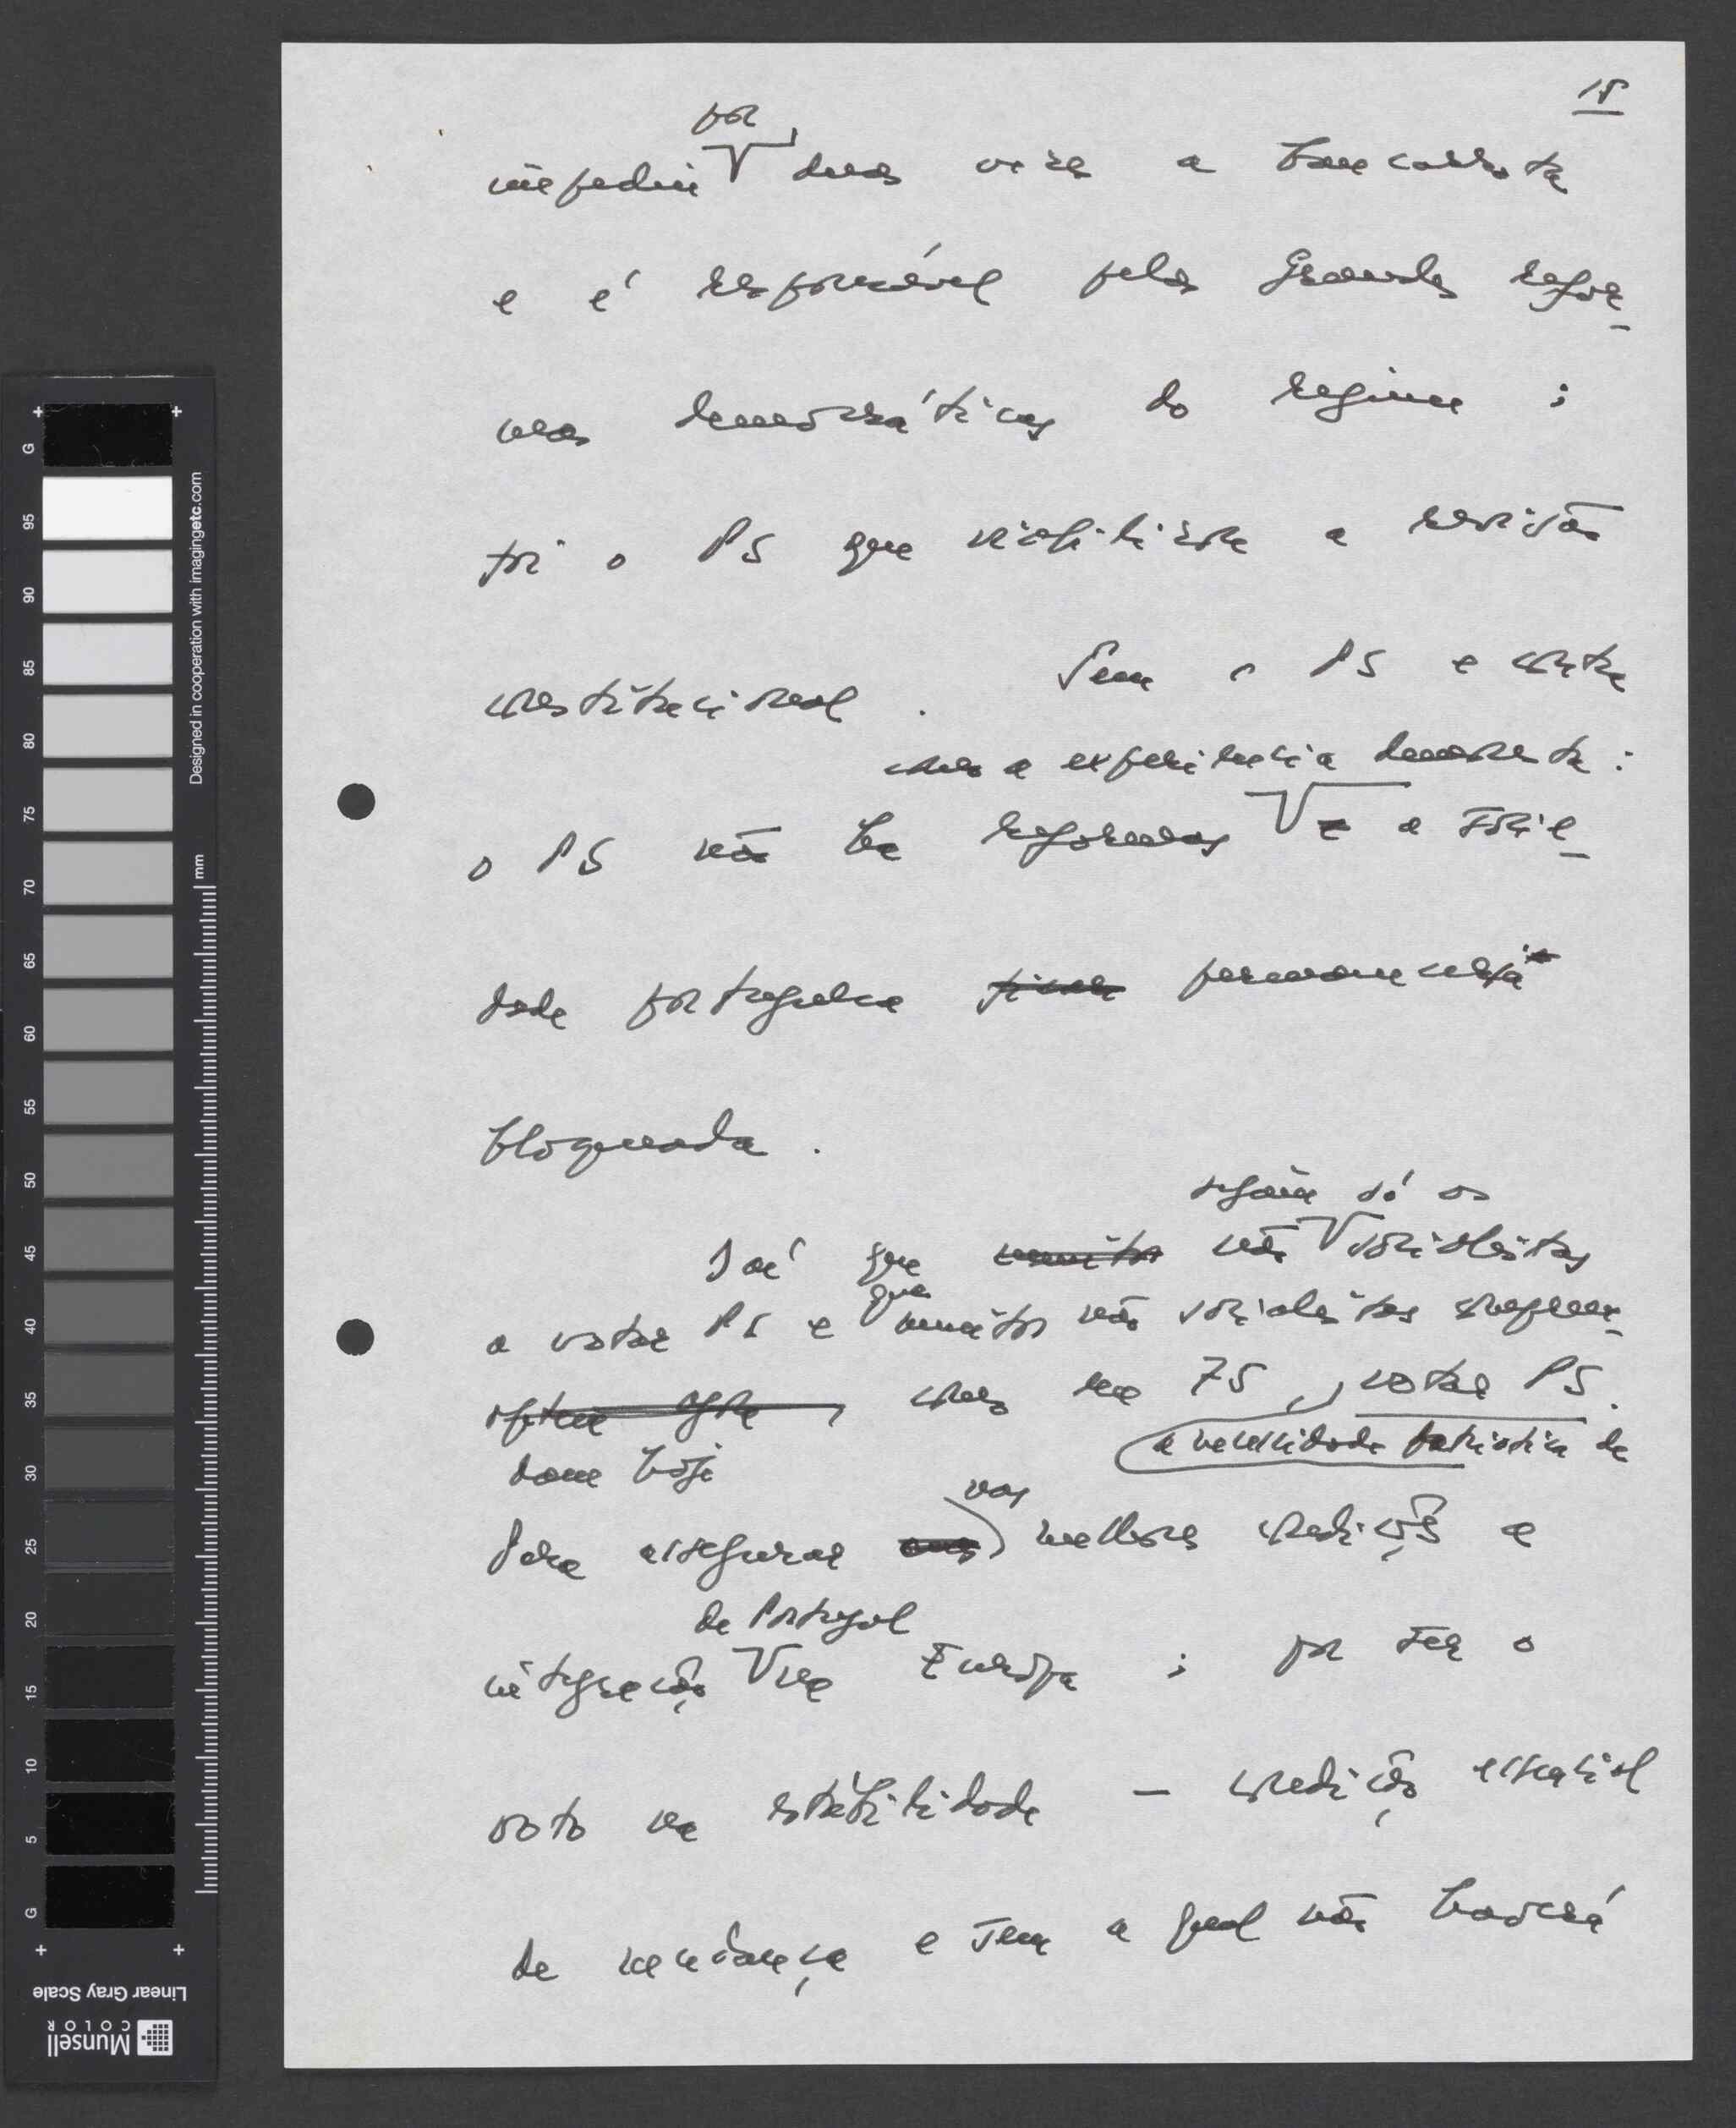 18
por
impediu duas vezes a bancarrota
e é responsável pelas grandes refor-
mas democráticas do regime ;
foi o PS que viabilizou a revisão
constitucional . Sem o PS e contra
como a experiência demonstra :
o PS não há reformas e a socie-
dade portuguesa ficará permanecerá
bloqueada .
sejam só os
Daí que muitos não socialistas
a votar PS e que muitos não socialistas compreen-
optem agora, como em 75, votar PS.
dam hoje a necessidade patriótica de
vas
Para assegurar melhores condições a
de Portugal
integração na Europa ; por ser o
voto na estabilidade – condição essencial
de mudança e sem a qual não haverá
G
95
90
85
80
75
70
65
60
55
50
45
40
35
30
25
20
15
10
5
G
mm
Designed in cooperation with imagingetc.com
Linear Gray Scale
Munsell
COLOR